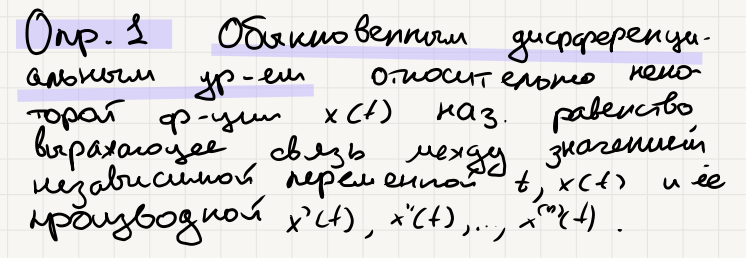 Опр. 1 Обыкновенным дифференци-
альным ур-ем относительно неко-
торой ф-ции x(t) наз. равенство
выражающее связь между значением
независимой переменной t, x(t) и ее
производной x'(t), x''(t), ..., x⁽ⁿ⁾(t).